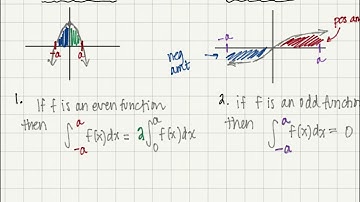 -a a
neg
amt
-a a
pos am
1. If f is an even function
then ∫_{-a}^{a} f(x)dx = 2∫_{0}^{a} f(x)dx
2. if f is an odd functio
then ∫_{-a}^{a} f(x)dx = 0